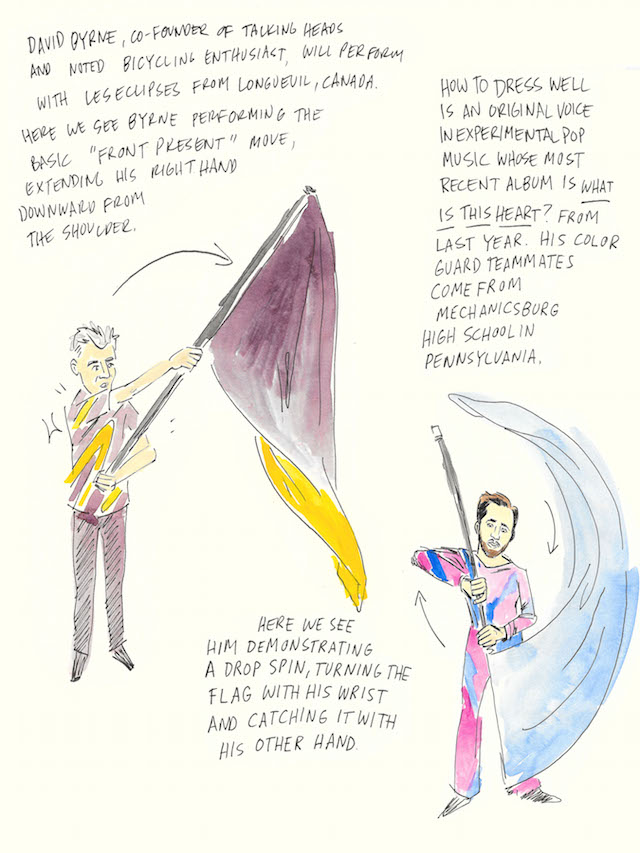 DAVID BYRNE, CO-FOUNDER OF TALKING HEADS
AND NOTED BICYCLING ENTHUSIAST, WILL PERFORM
WITH LES ECLIPSES FROM LONGUEUIL, CANADA.
HERE WE SEE BYRNE PERFORMING THE
BASIC "FRONT PRESENT" MOVE,
EXTENDING HIS RIGHT HAND
DOWNWARD FROM
THE SHOULDER.
HOW TO DRESS WELL
IS AN ORIGINAL VOICE
IN EXPERIMENTAL POP
MUSIC WHOSE MOST
RECENT ALBUM IS WHAT
IS THIS HEART? FROM
LAST YEAR. HIS COLOR
GUARD TEAMMATES
COME FROM
MECHANICSBURG
HIGH SCHOOL IN
PENNSYLVANIA.
HERE WE SEE
HIM DEMONSTRATING
A DROP SPIN, TURNING THE
FLAG WITH HIS WRIST
AND CATCHING IT WITH
HIS OTHER HAND.